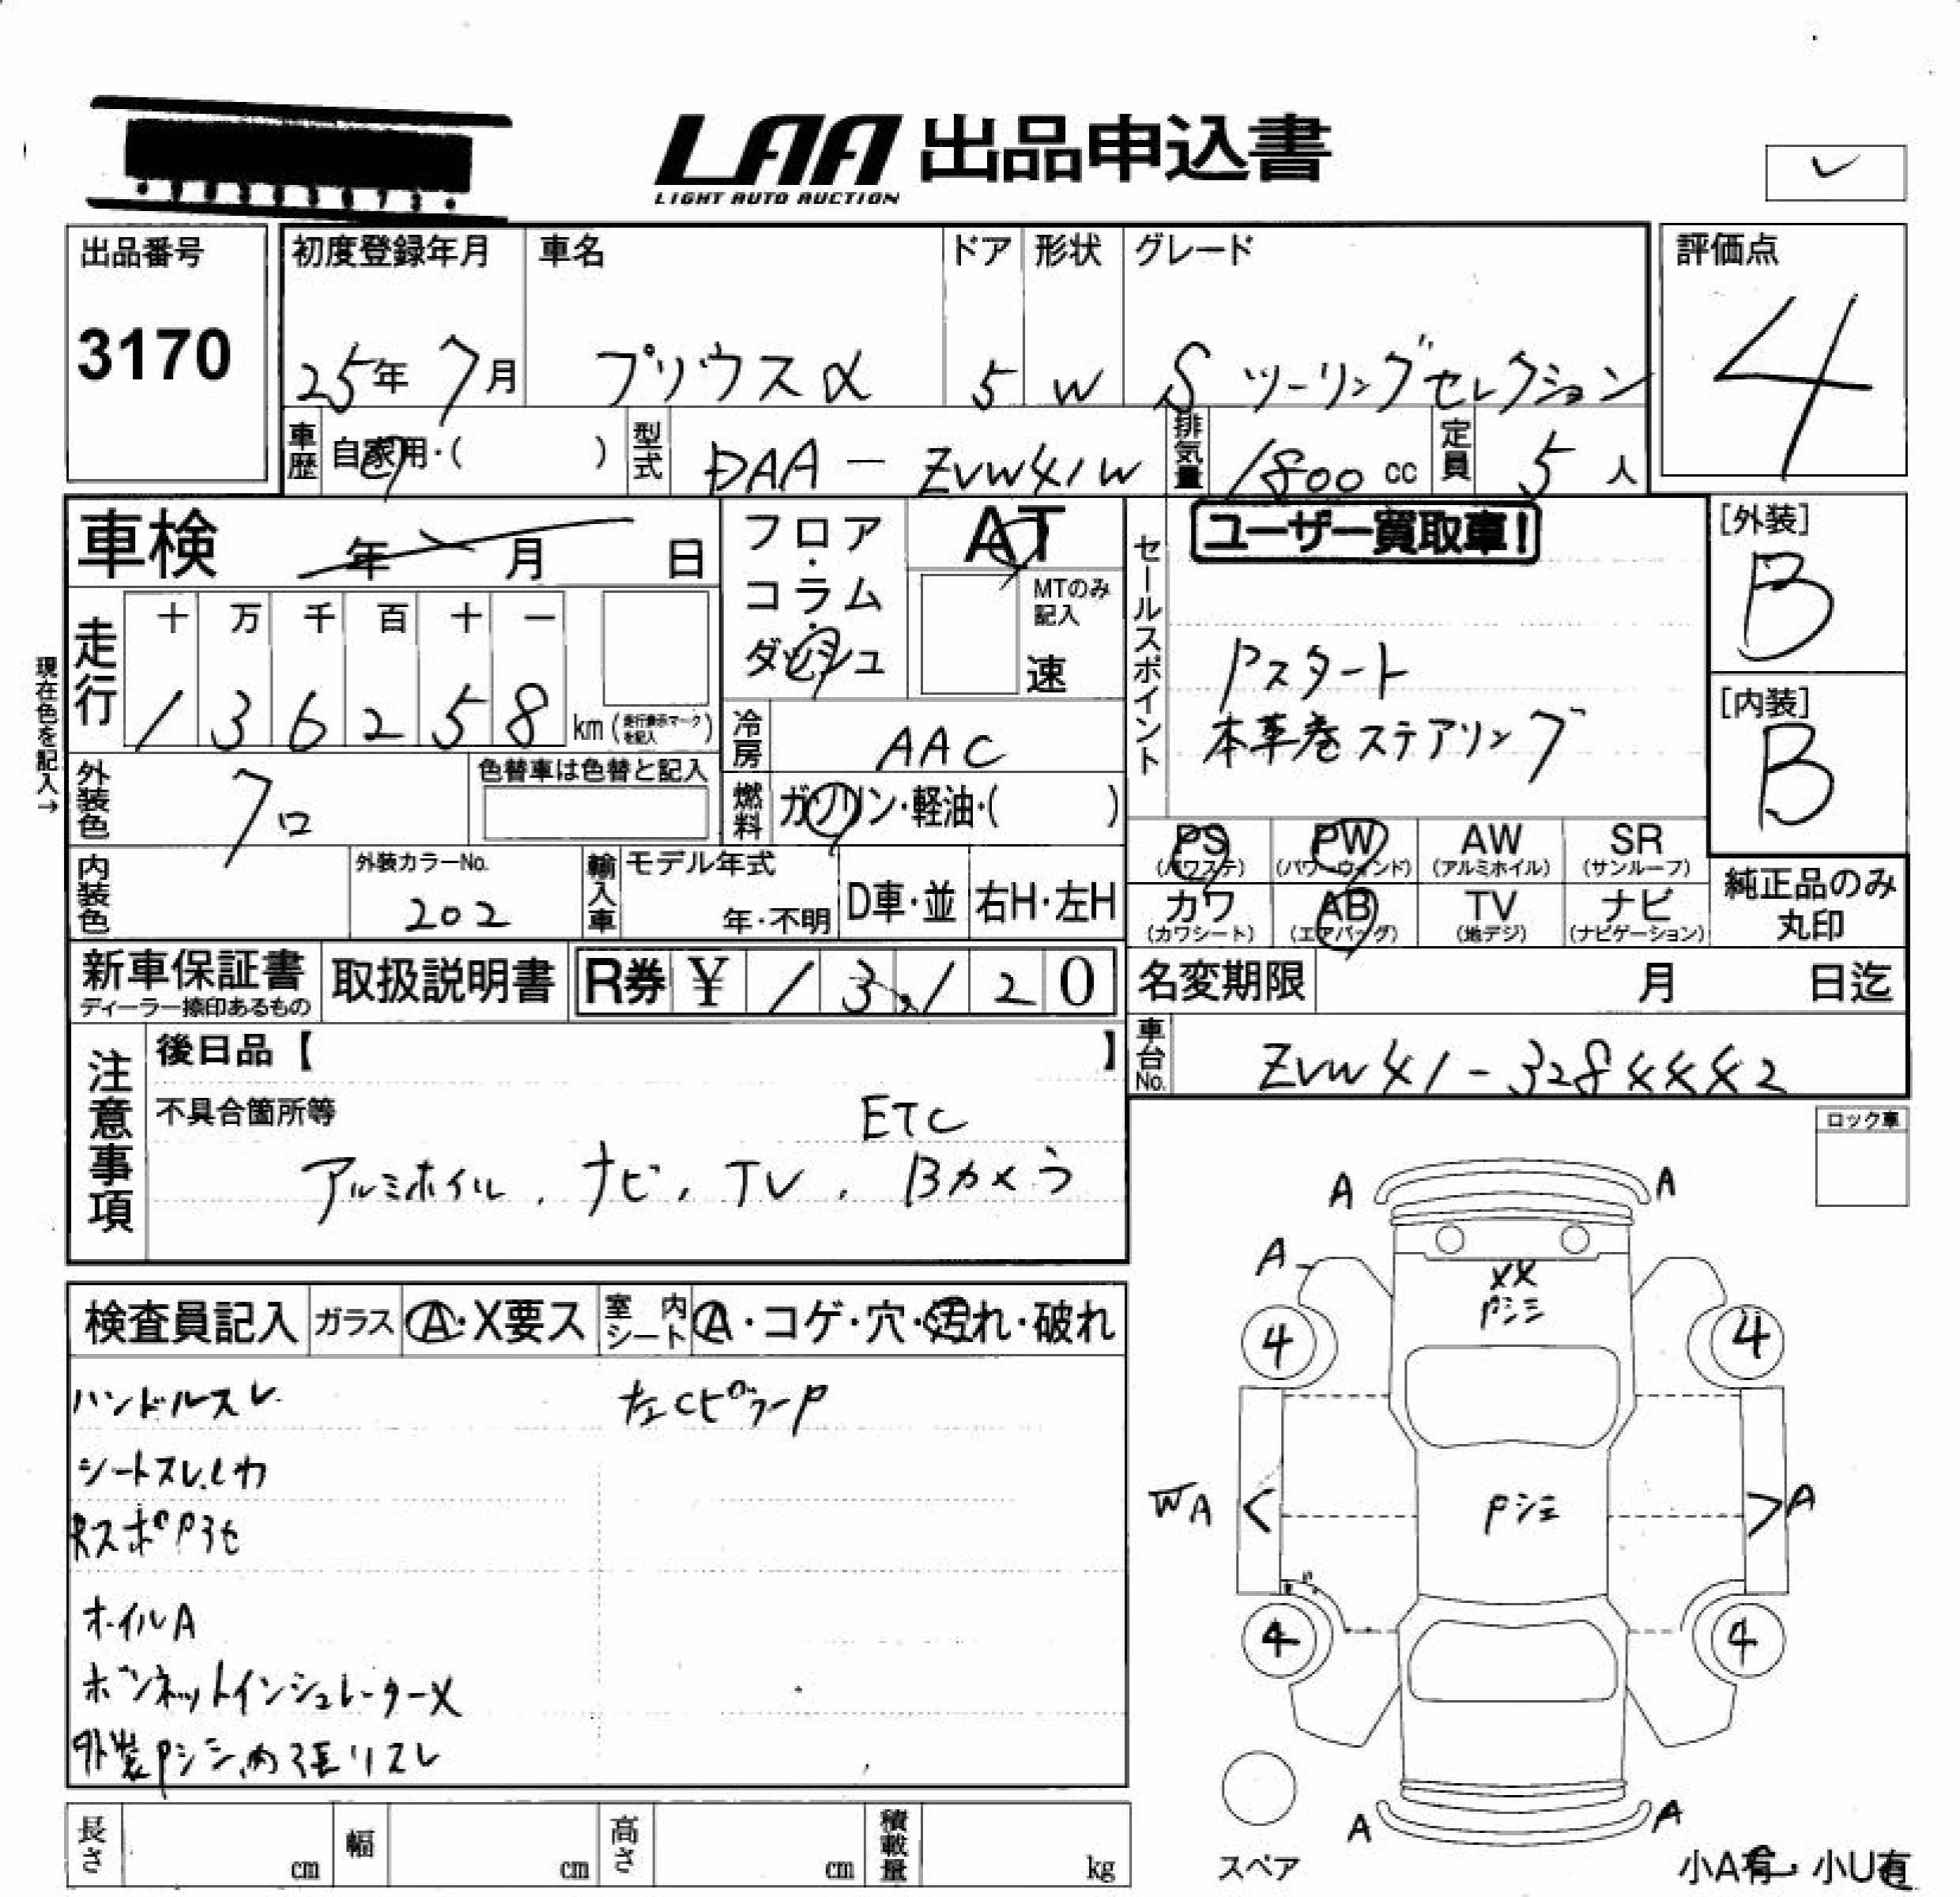 LAA 出品申込書
LIGHT AUTO AUCTION
出品番号 初度登録年月 車名 ドア 形状 グレード 評価点
3170 25年 7月 プリウスα 5 W S ツーリングセレクション 4
車歴 自家用・( ) 型式 DAA-ZVW41W 排気量 1800cc 定員 5人
車検 年 月 日
フロア・コラム・ダッシュ
AT
MTのみ記入
速
セールスポイント
ユーザー買取車!
Pスタート
本革巻ステアリング
[外装]
B
[内装]
B
現在色を記入→
走行 十 万 千 百 十 一
1 3 6 2 5 8 km(走行表示マークを記入)
冷房 AAC
外装色 クロ 色替車は色替と記入
燃料 ガソリン・軽油・( )
内装色 外装カラーNo. 202
輸入車 モデル年式 年・不明 D車・並 右H・左H
PS (パワステ) PW (パワーウィンド) AW (アルミホイル) SR (サンルーフ)
カワ (カワシート) AB (エアバッグ) TV (地デジ) ナビ (ナビゲーション)
純正品のみ丸印
新車保証書 ディーラー捺印あるもの 取扱説明書 R券 ¥ 1 3 1 2 0
名変期限 月 日迄
車台No. ZVW41-3284442
注意事項
後日品【 】
不具合箇所等
ETC
アルミホイル、ナビ、TV、Bカメラ
ロック車
検査員記入 ガラス A・X要ス 室内シート A・コゲ・穴・汚れ・破れ
ハンドルスレ 左CピラーP
シートスレ、シワ
ホイルA
ボンネットインシュレーターX
外装Pシミ、内張リスレ
A A
A
XX
Pシミ
4 4
WA Pシミ A
4 4
A A
スペア
小A有・小U有
長さ cm 幅 cm 高さ cm 積載量 kg